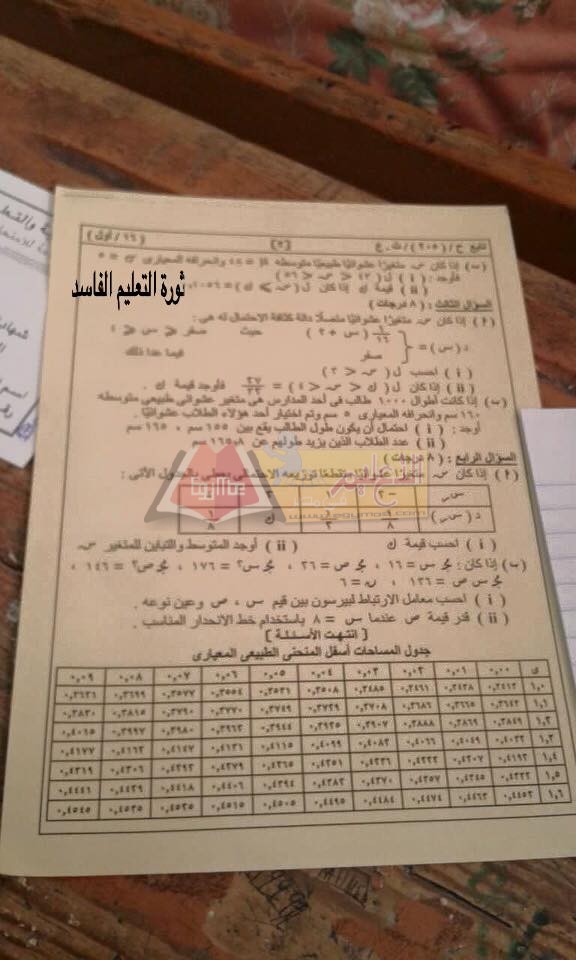 تابع ح / (٢٠٥) / ث . ع [٢] (٦٦ / أول)
(ب) إذا كان س متغيرًا عشوائيًا طبيعيًا متوسطه μ = ٤٨ وانحرافه المعيارى σ = ٥
فأوجد : ( i ) ل ( ٤٣ < س < ٥٦ )
( ii ) قيمة ك إذا كان ل ( س ⩽ ك ) = ٠,١٠٥٦
ثورة التعليم الفاسد
السؤال الثالث : ( ٨ درجات )
( ٢ ) إذا كان س متغيرًا عشوائيًا متصلًا دالة كثافة الاحتمال له هى :
د ( س ) = ( س + ٢ ) حيث صفر ⩽ س ⩽ ٤
صفر فيما عدا ذلك
( i ) احسب ل ( س < ٢ )
( ii ) إذا كان ل ( ك < س < ٤ ) = ٢٧/٣٢ فأوجد قيمة ك .
(ب) إذا كانت أطوال ١٠٠٠ طالب فى أحد المدارس هى متغير عشوائى طبيعى متوسطه
١٦٠ سم وانحرافه المعيارى ٥ سم وتم اختيار أحد هؤلاء الطلاب عشوائيًا .
أوجد : ( i ) احتمال أن يكون طول الطالب يقع بين ١٥٥ سم ، ١٦٥ سم
( ii ) عدد الطلاب الذين يزيد طولهم عن ١٦٥,٨ سم
السؤال الرابع : ( ٨ درجات )
( ٢ ) إذا كان س متغيرًا عشوائيًا متقطعًا توزيعه الاحتمالى يعطى بالجدول الآتى :
د ( س )
( i ) احسب قيمة ك ( ii ) أوجد المتوسط والتباين للمتغير س
(ب) إذا كان : مجـ س = ١٦ ، مجـ ص = ٢٦ ، مجـ س٢ = ١٧٦ ، مجـ ص٢ = ١٤٦ ،
مجـ س ص = ١٣٦ ، ن = ٦
( i ) احسب معامل الارتباط لبيرسون بين قيم س ، ص وعين نوعه .
( ii ) قدر قيمة ص عندما س = ٨ باستخدام خط الانحدار المناسب .
[ انتهت الأسئلة ]
جدول المساحات أسفل المنحنى الطبيعى المعيارى
ى ٠,٠٠ ٠,٠١ ٠,٠٢ ٠,٠٣ ٠,٠٤ ٠,٠٥ ٠,٠٦ ٠,٠٧ ٠,٠٨ ٠,٠٩
١,٠ ٠,٣٤١٣ ٠,٣٤٣٨ ٠,٣٤٦١ ٠,٣٤٨٥ ٠,٣٥٠٨ ٠,٣٥٣١ ٠,٣٥٥٤ ٠,٣٥٧٧ ٠,٣٥٩٩ ٠,٣٦٢١
١,١ ٠,٣٦٤٣ ٠,٣٦٦٥ ٠,٣٦٨٦ ٠,٣٧٠٨ ٠,٣٧٢٩ ٠,٣٧٤٩ ٠,٣٧٧٠ ٠,٣٧٩٠ ٠,٣٨١٥ ٠,٣٨٣٠
١,٢ ٠,٣٨٤٩ ٠,٣٨٦٩ ٠,٣٨٨٨ ٠,٣٩٠٧ ٠,٣٩٢٥ ٠,٣٩٤٤ ٠,٣٩٦٢ ٠,٣٩٨٠ ٠,٣٩٩٧ ٠,٤٠١٥
١,٣ ٠,٤٠٣٢ ٠,٤٠٤٩ ٠,٤٠٦٦ ٠,٤٠٨٢ ٠,٤٠٩٩ ٠,٤١١٥ ٠,٤١٣١ ٠,٤١٤٧ ٠,٤١٦٢ ٠,٤١٧٧
١,٤ ٠,٤١٩٢ ٠,٤٢٠٧ ٠,٤٢٢٢ ٠,٤٢٣٦ ٠,٤٢٥١ ٠,٤٢٦٥ ٠,٤٢٧٩ ٠,٤٢٩٢ ٠,٤٣٠٦ ٠,٤٣١٩
١,٥ ٠,٤٣٣٢ ٠,٤٣٤٥ ٠,٤٣٥٧ ٠,٤٣٧٠ ٠,٤٣٨٢ ٠,٤٣٩٤ ٠,٤٤٠٦ ٠,٤٤١٨ ٠,٤٤٢٩ ٠,٤٤٤١
١,٦ ٠,٤٤٥٢ ٠,٤٤٦٣ ٠,٤٤٧٤ ٠,٤٤٨٤ ٠,٤٤٩٥ ٠,٤٥٠٥ ٠,٤٥١٥ ٠,٤٥٢٥ ٠,٤٥٣٥ ٠,٤٥٤٥